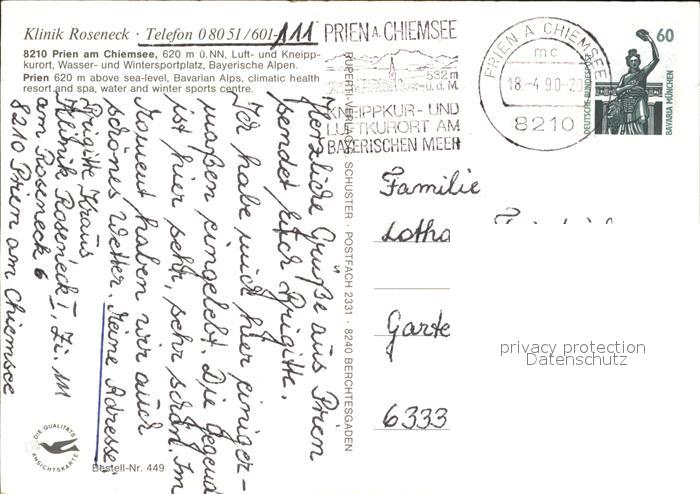 Klinik Roseneck · Telefon 0 80 51 / 601-111
8210 Prien am Chiemsee, 620 m ü.NN, Luft- und Kneipp-
kurort, Wasser- und Wintersportplatz, Bayerische Alpen.
Prien 620 m above sea-level, Bavarian Alps, climatic health
resort and spa, water and winter sports centre.
Herzliche Grüße aus Prien
sendet Euch Brigitte.
Ich habe mich hier einiger-
maßen eingelebt. Die Gegend
ist hier sehr, sehr schön. Im
Moment haben wir auch
schönes Wetter. Meine Adresse:
Brigitte Kraus
Klinik Roseneck I, Zi. 111
am Roseneck 6
8210 Prien am Chiemsee
DIE QUALITÄTS
ANSICHTSKARTE
Bestell-Nr. 449
RUPERTI-VERLAG · SCHUSTER · POSTFACH 2331 · 8240 BERCHTESGADEN
PRIEN A. CHIEMSEE
532 m
ü.d.M.
KNEIPPKUR- UND
LUFTKURORT AM
BAYERISCHEN MEER
PRIEN A CHIEMSEE
mc
18.-4.90-2
8210
60
DEUTSCHE BUNDESPOST
BAVARIA MÜNCHEN
Familie
Lotha
Garte
6333
privacy protection
Datenschutz